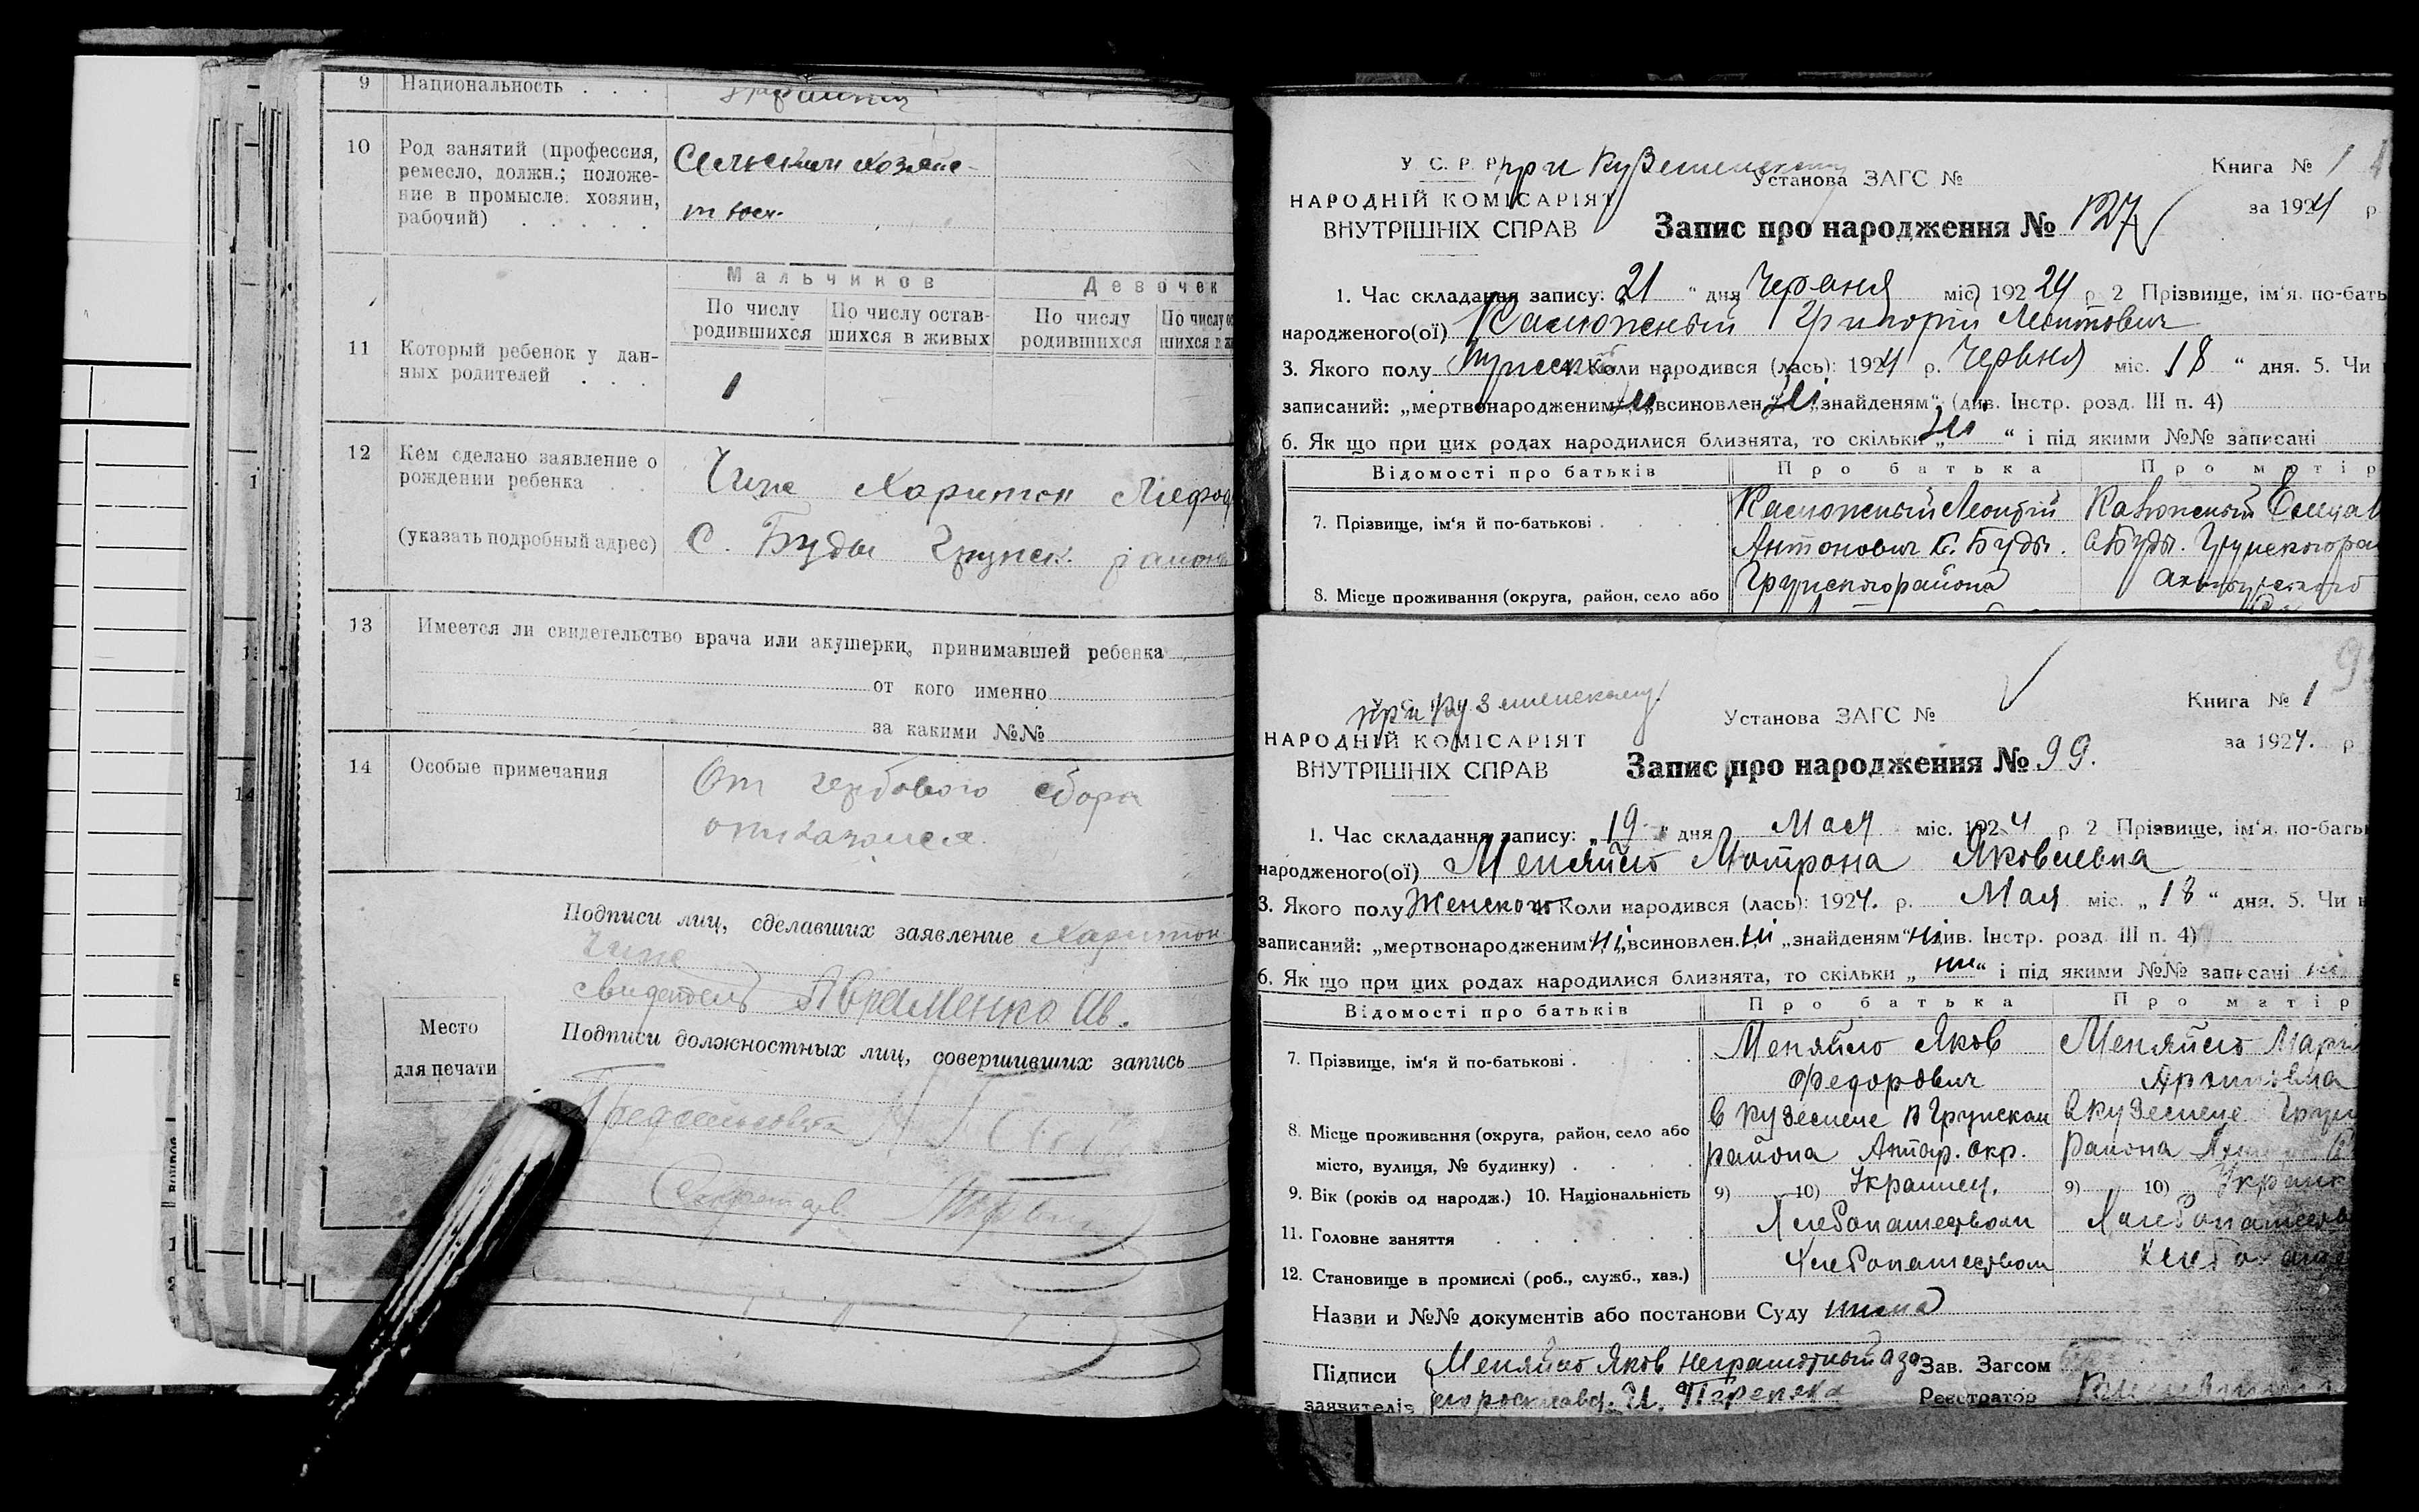 9 Национальность . . .
10 Род занятий (профессия,
ремесло, должн.; положе-
ние в промысле: хозяин,
рабочий) . . . . .
Сельским хозяйс-
твом.
Мальчиков Девочек
По числу родившихся По числу остав-шихся в живых По числу родившихся По числу
11 Который ребенок у дан-
ных родителей . . .
1
12 Кем сделано заявление о
рождении ребенка . .
(указать подробный адрес)
Чипе Харитон
С. Буды Грунск. района
13 Имеется ли свидетельство врача или акушерки, принимавшей ребенка
от кого именно
за какими №№
14 Особые примечания
От гербового сбора
отказался.
Подписи лиц, сделавших заявление Харитон
Чипе
свидетель Авраменко Ив.
Место
для печати
Подписи должностных лиц, совершивших запись
Предсельсовета
Секретарь
У. С. Р. Р. при
Установа ЗАГС №
Книга № 1
НАРОДНІЙ КОМІСАРІЯТ
ВНУТРІШНІХ СПРАВ
за 1924 р
Запис про народження № 127
1. Час складання запису: „21 “ дня Червня міс. 1924 р 2 Прізвище, ім‘я, по-бать
народженого(ої) Калюжный Григорий Леонтович
3. Якого полу Мужеск. 4. Коли народився (лась): 1924 р. Червня міс. 18 “ дня. 5. Чи
записаний: „мертвонародженим“ ні „всиновлен.“ ні „знайденям“ (див. Інстр. розд. III п. 4)
6. Як що при цих родах народилися близнята, то скільки „ ні “ і під якими №№ записані
Відомості про батьків Про батька Про матір
7. Прізвище, ім‘я й по-батькові . . . .
Калюжный Леонтій
Антонович С. Буды.
с Буды. Грунского ра
8. Місце проживання (округа, район, село або
Грунского района
при Кузменскому
Установа ЗАГС №
Книга № 1
НАРОДНІЙ КОМІСАРІЯТ
ВНУТРІШНІХ СПРАВ
за 1924. р
Запис про народження № 99.
1. Час складання запису: „19 “ дня Мая міс. 1924 р 2 Прізвище, ім‘я, по-батьк
народженого(ої) Меняйло Мотрона Яковлевна
3. Якого полу Женского 4. Коли народився (лась): 1924. р. Мая міс. „18 “ дня. 5. Чи
записаний: „мертвонародженим“ ні „всиновлен.“ ні „знайденям“ ні див. Інстр. розд. III п. 4)
6. Як що при цих родах народилися близнята, то скільки „ ни “ і під якими №№ записані ні
Відомості про батьків Про батька Про матір
7. Прізвище, ім‘я й по-батькові .
Меняйло Яков Меняйло Марі
Федорович
8. Місце проживання (округа, район, село або
місто, вулиця, № будинку) . . . .
района Ахтыр. окр. района
9. Вік (років од народж.) 10. Національність 9) 10) Украинец. 9) 10) Украинк
11. Головне заняття . . . . . .
Хлебопашеством Хлебопашеств
12. Становище в промислі (роб., служб., хаз.)
Хлебопашеством
Назви и №№ документів або постанови Суду
Підписи Меняйло Яков неграмотный а за Зав. Загсом
заявителів Реєстратор